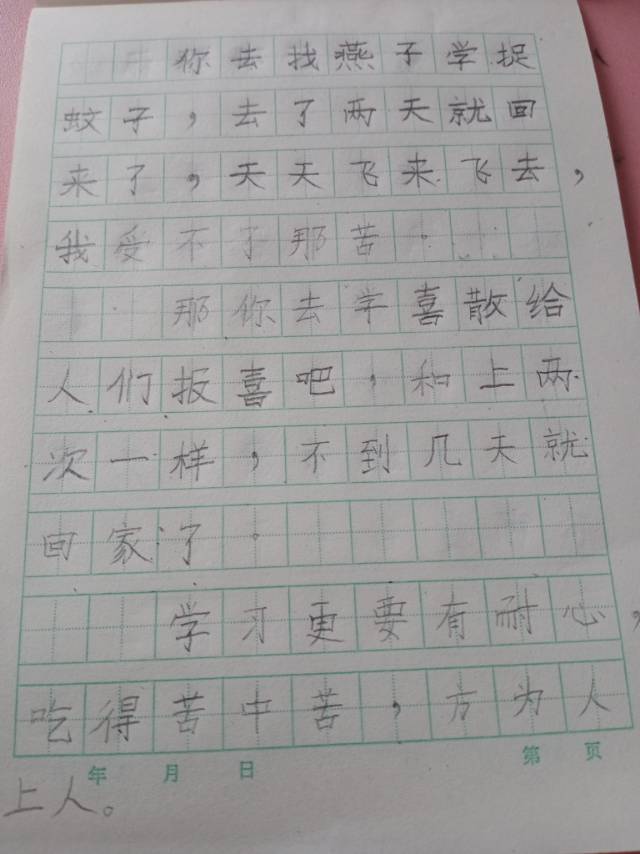 你去找燕子学捉
蚊子，去了两天就回
来了，天天飞来飞去，
我受不了那苦。
那你去学喜散给
人们报喜吧，和上两
次一样，不到几天就
回家了。
学习更要有耐心，
吃得苦中苦，方为人
年 月 日 第 页
上人。